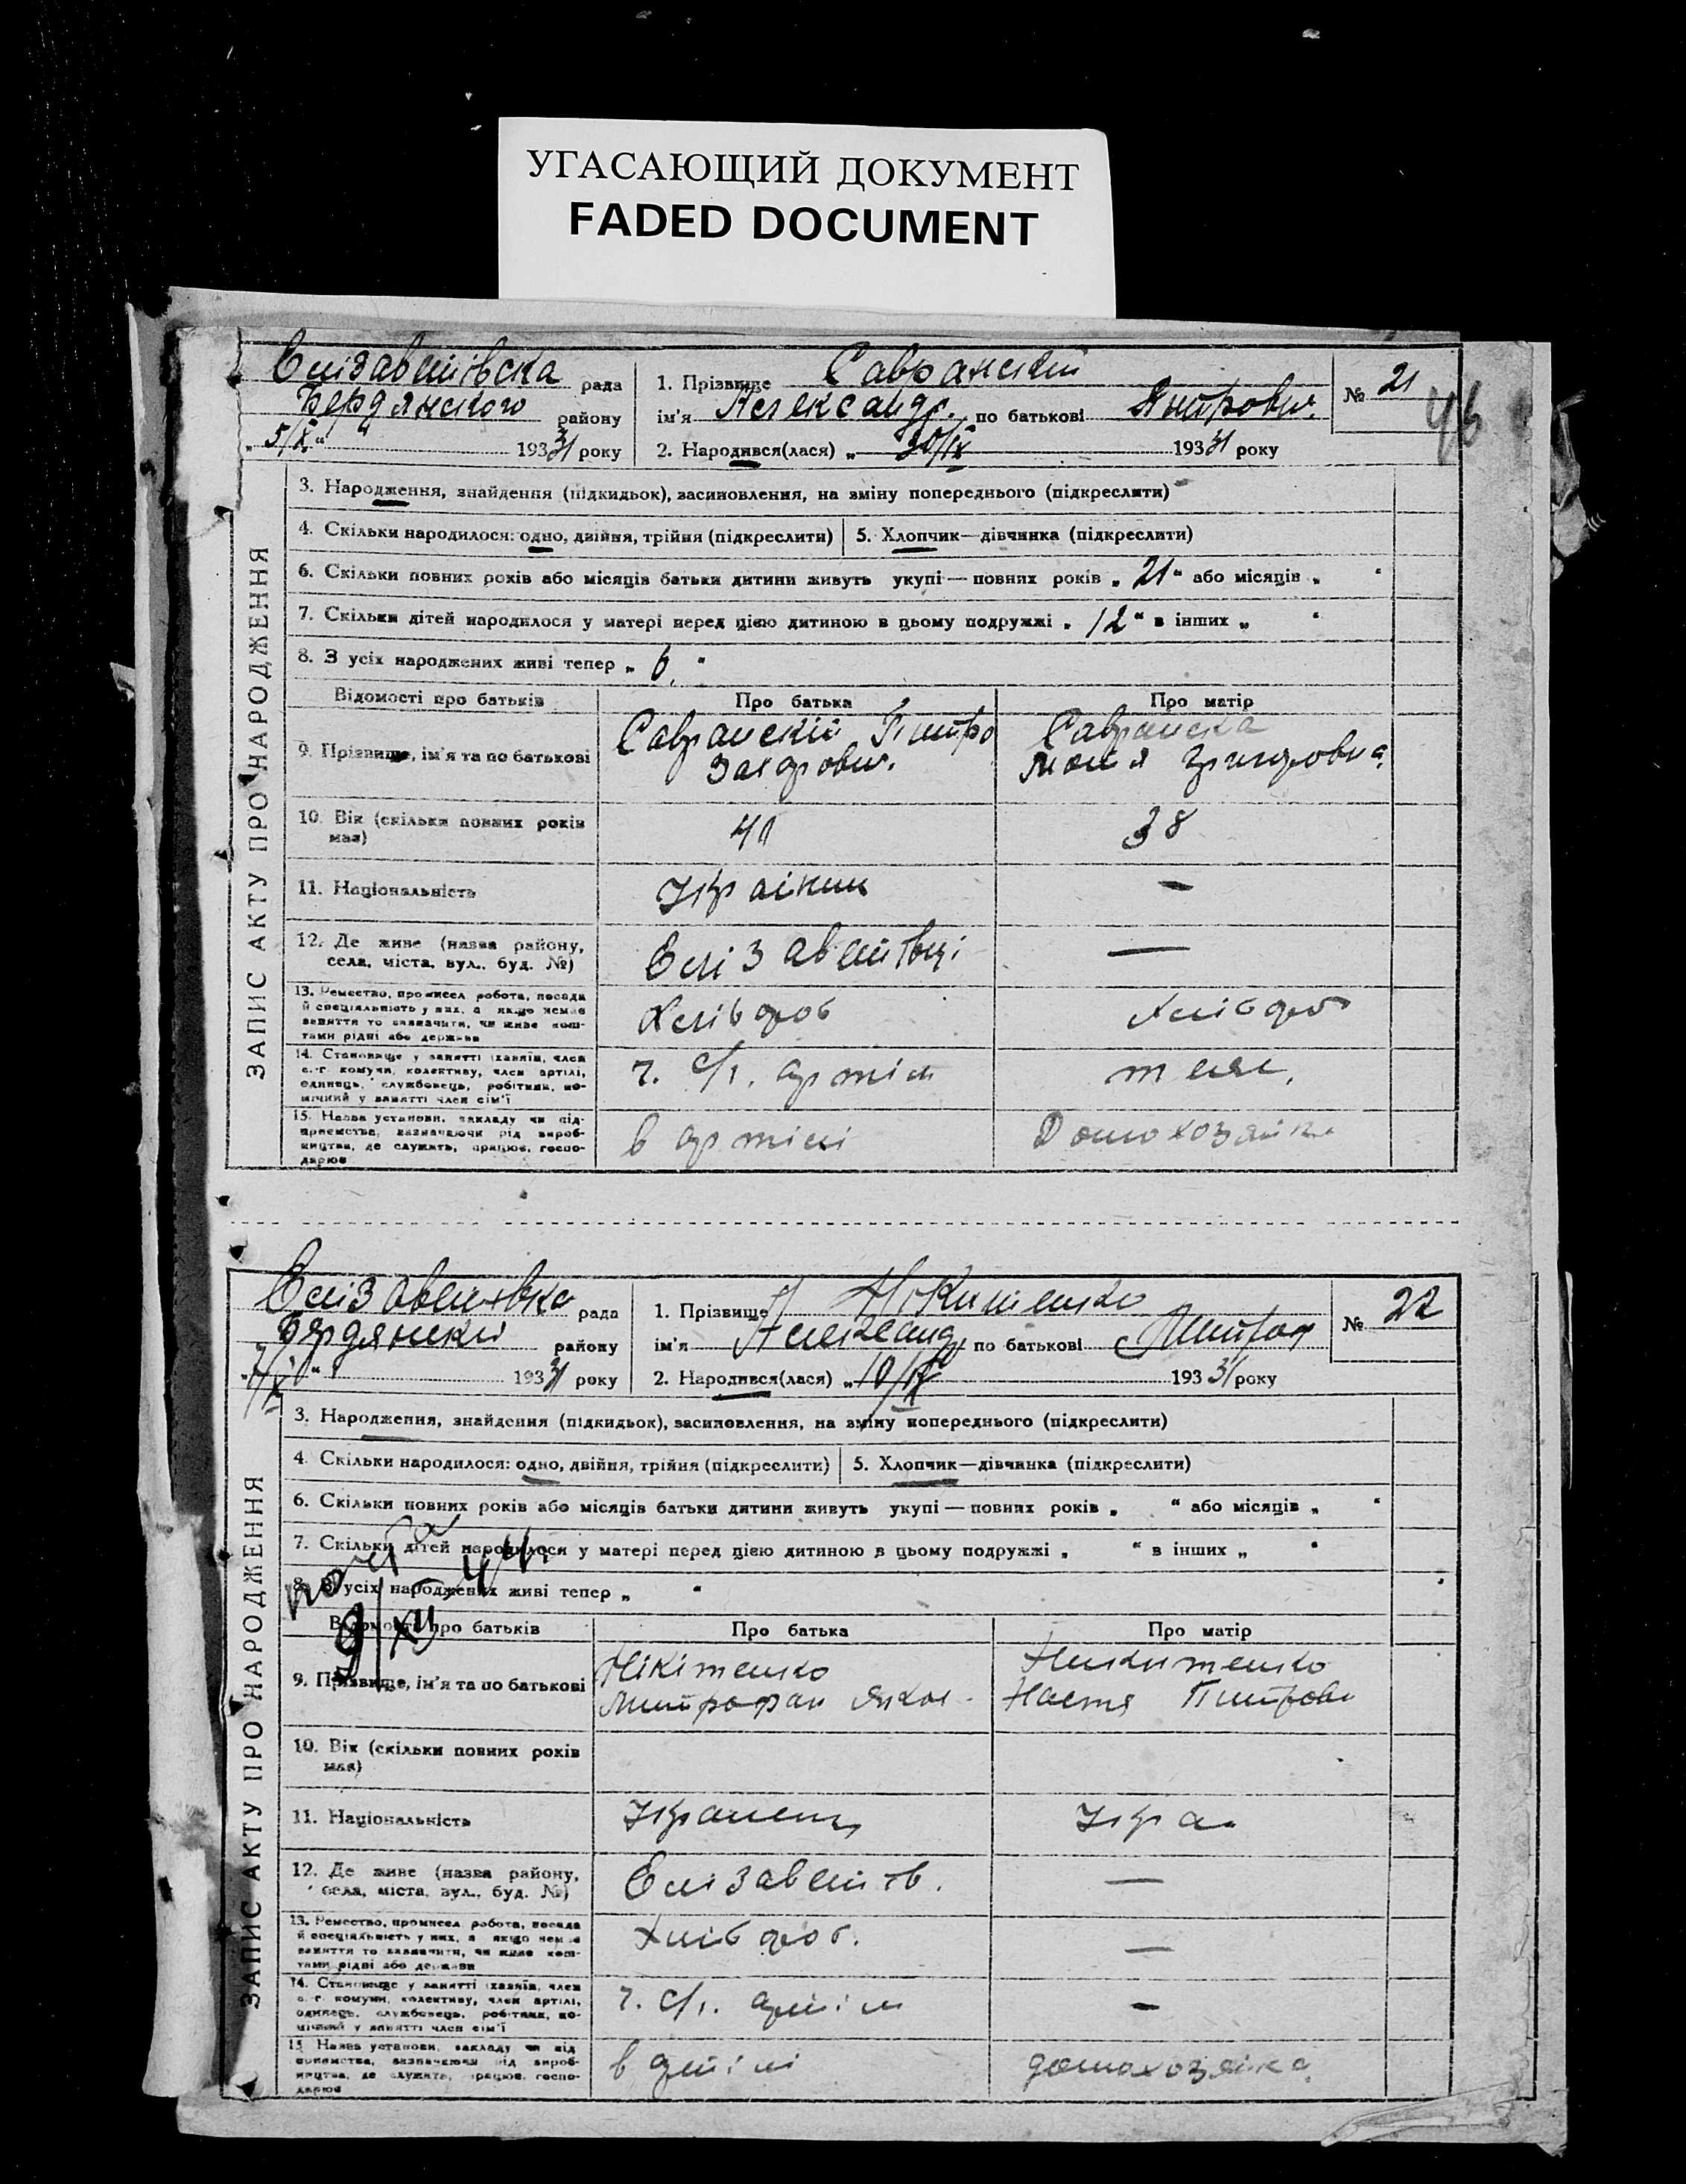 УГАСАЮЩИЙ ДОКУМЕНТ
FADED DOCUMENT
Єлізаветівска рада
Бердянского району
„5/X“ 1933 31 року
1. Прізвище Савранский
ім'я Александр. по батькові
2. Народився(лася) „ 30/IX 193 31 року
№ 21
46
ЗАПИС АКТУ ПРО НАРОДЖЕННЯ
3. Народження, знайдення (підкидьок), засиновлення, на зміну попереднього (підкреслити)
4. Скільки народилося: одно, двійня, трійня (підкреслити) 5. Хлопчик—дівчинка (підкреслити)
6. Скільки повних років або місяців батьки дитини живуть укупі — повних років „ 21 “ або місяців „ “
7. Скільки дітей народилося у матері перед цією дитиною в цьому подружжі „ 12 “ в інших „ “
8. З усіх народжених живі тепер „ 6. “
Відомості про батьків Про батька Про матір
9. Прізвище, ім'я та по батькові
Савранский Питро
Савранска
10. Вік (скільки повних років
має)
38
11. Національність
— 
12. Де живе (назва району,
села, міста, вул., буд. №)
Єлізаветівці
—
13. Ремество, промисел робота, посада
й спеціяльність у них, а якщо немає
заняття то зазначити, чи живе кош-
тами рідні або держави
Хлібороб
Хлібороб
14. Становище у занятті (хазяїн, член
с.-г. комуни, колективу, член артілі,
одинець, службовець, робітник, по-
мічний у занятті член сім'ї
ч. с/г. артіл
15. Назва установи, закладу чи під-
приємства, зазначаючи рід вироб-
ництва, де служить, працює, госпо-
дарює
в артілі
Домохозяйка
Єлізаветівка рада
Бердянски району
193 31 року
1. Прізвище Нікитенко
ім'я Александр по батькові
2. Народився(лася) „10/IX 193 31 року
№ 22
ЗАПИС АКТУ ПРО НАРОДЖЕННЯ
3. Народження, знайдення (підкидьок), засиновлення, на зміну попереднього (підкреслити)
4. Скільки народилося: одно, двійня, трійня (підкреслити) 5. Хлопчик—дівчинка (підкреслити)
6. Скільки повних років або місяців батьки дитини живуть укупі — повних років „ “ або місяців „ “
7. Скільки дітей народилося у матері перед цією дитиною в цьому подружжі „ “ в інших „ “
8. З усіх народжених живі тепер „ “
9/XII
Відомості про батьків Про батька Про матір
9. Прізвище, ім'я та по батькові
Нікітенко
Митрофан Яков.
Никитенко
Настя Питров
10. Вік (скільки повних років
має)
11. Національність
Украинец
Укра.
12. Де живе (назва району,
села, міста, вул., буд. №)
Єлізаветів.
—
13. Ремество, промисел робота, посада
й спеціяльність у них, а якщо немає
заняття то зазначити, чи живе кош-
тами рідні або держави
Хлібороб.
—
14. Становище у занятті (хазяїн, член
с.-г. комуни, колективу, член артілі,
одинець, службовець, робітник, по-
мічний у занятті член сім'ї
ч. с/г. артіл
—
15. Назва установи, закладу чи під-
приємства, зазначаючи рід вироб-
ництва, де служить, працює, госпо-
дарює
в артілі
домохозяйка